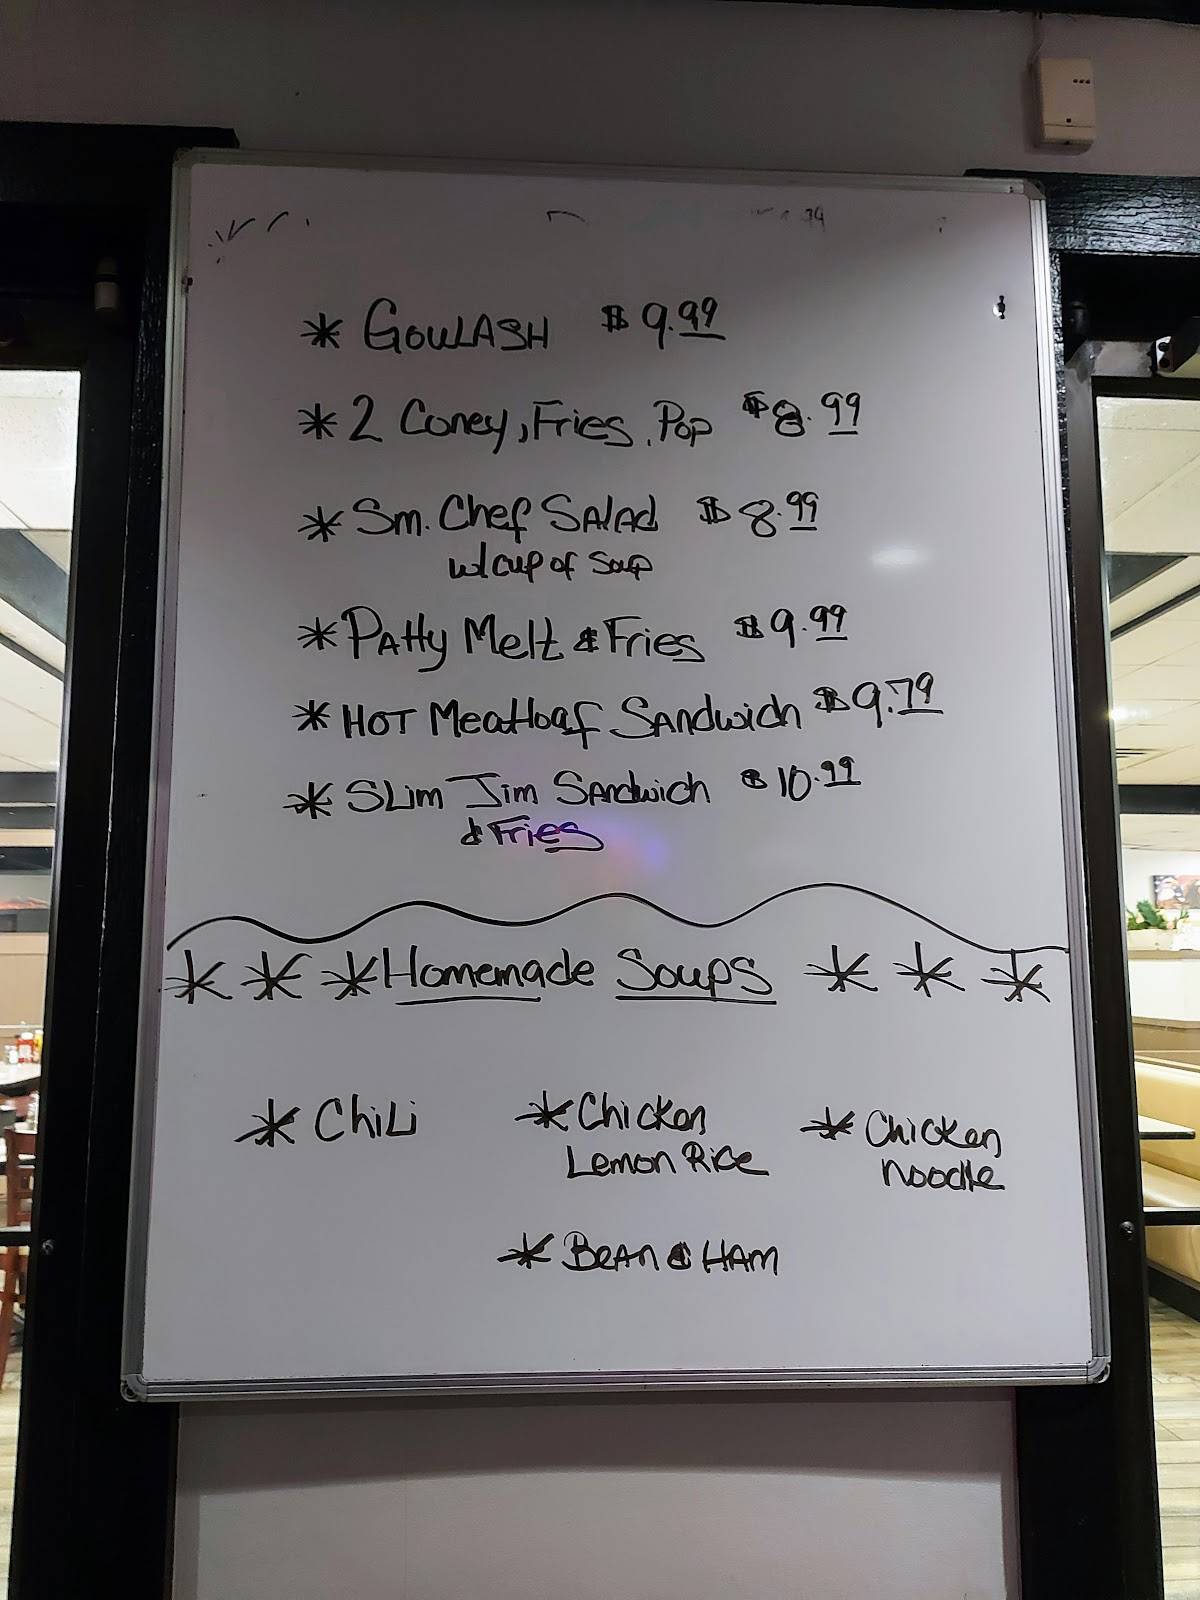 * GOULASH $ 9.99
* 2 Coney, Fries, Pop $8.99
* Sm. Chef SALAD $ 8.99
w/ cup of Soup
* PAtty Melt & Fries $9.99
* HOT Meatloaf SANdwich $9.79
* SLim Jim SANdwich $10.99
& Fries
* * * Homemade Soups * * *
* ChiLi
* Chicken
Lemon Rice
* Chicken
Noodle
* BEAN & HAM